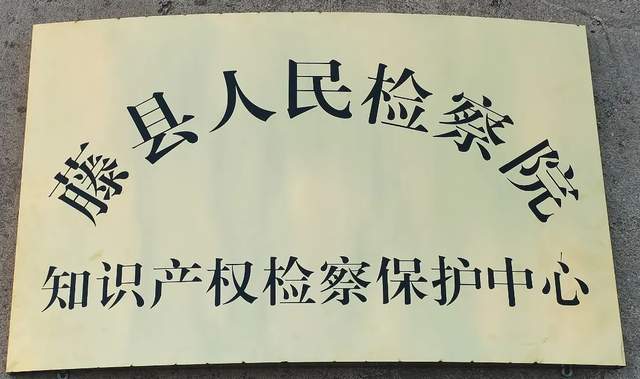 藤县人民检察院
知识产权检察保护中心